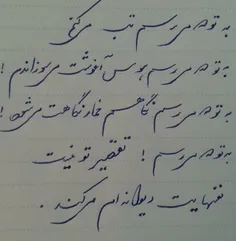 به تو که می رسم تب می کنم
به تو که می رسم هوس آغوشت می سوزاندم !
به تو که می رسم نگاهم خمار نگاهت می شود !
به تو که می رسم ! تقصیر تو نیست
تنهاییت دیوانه ام می کند .